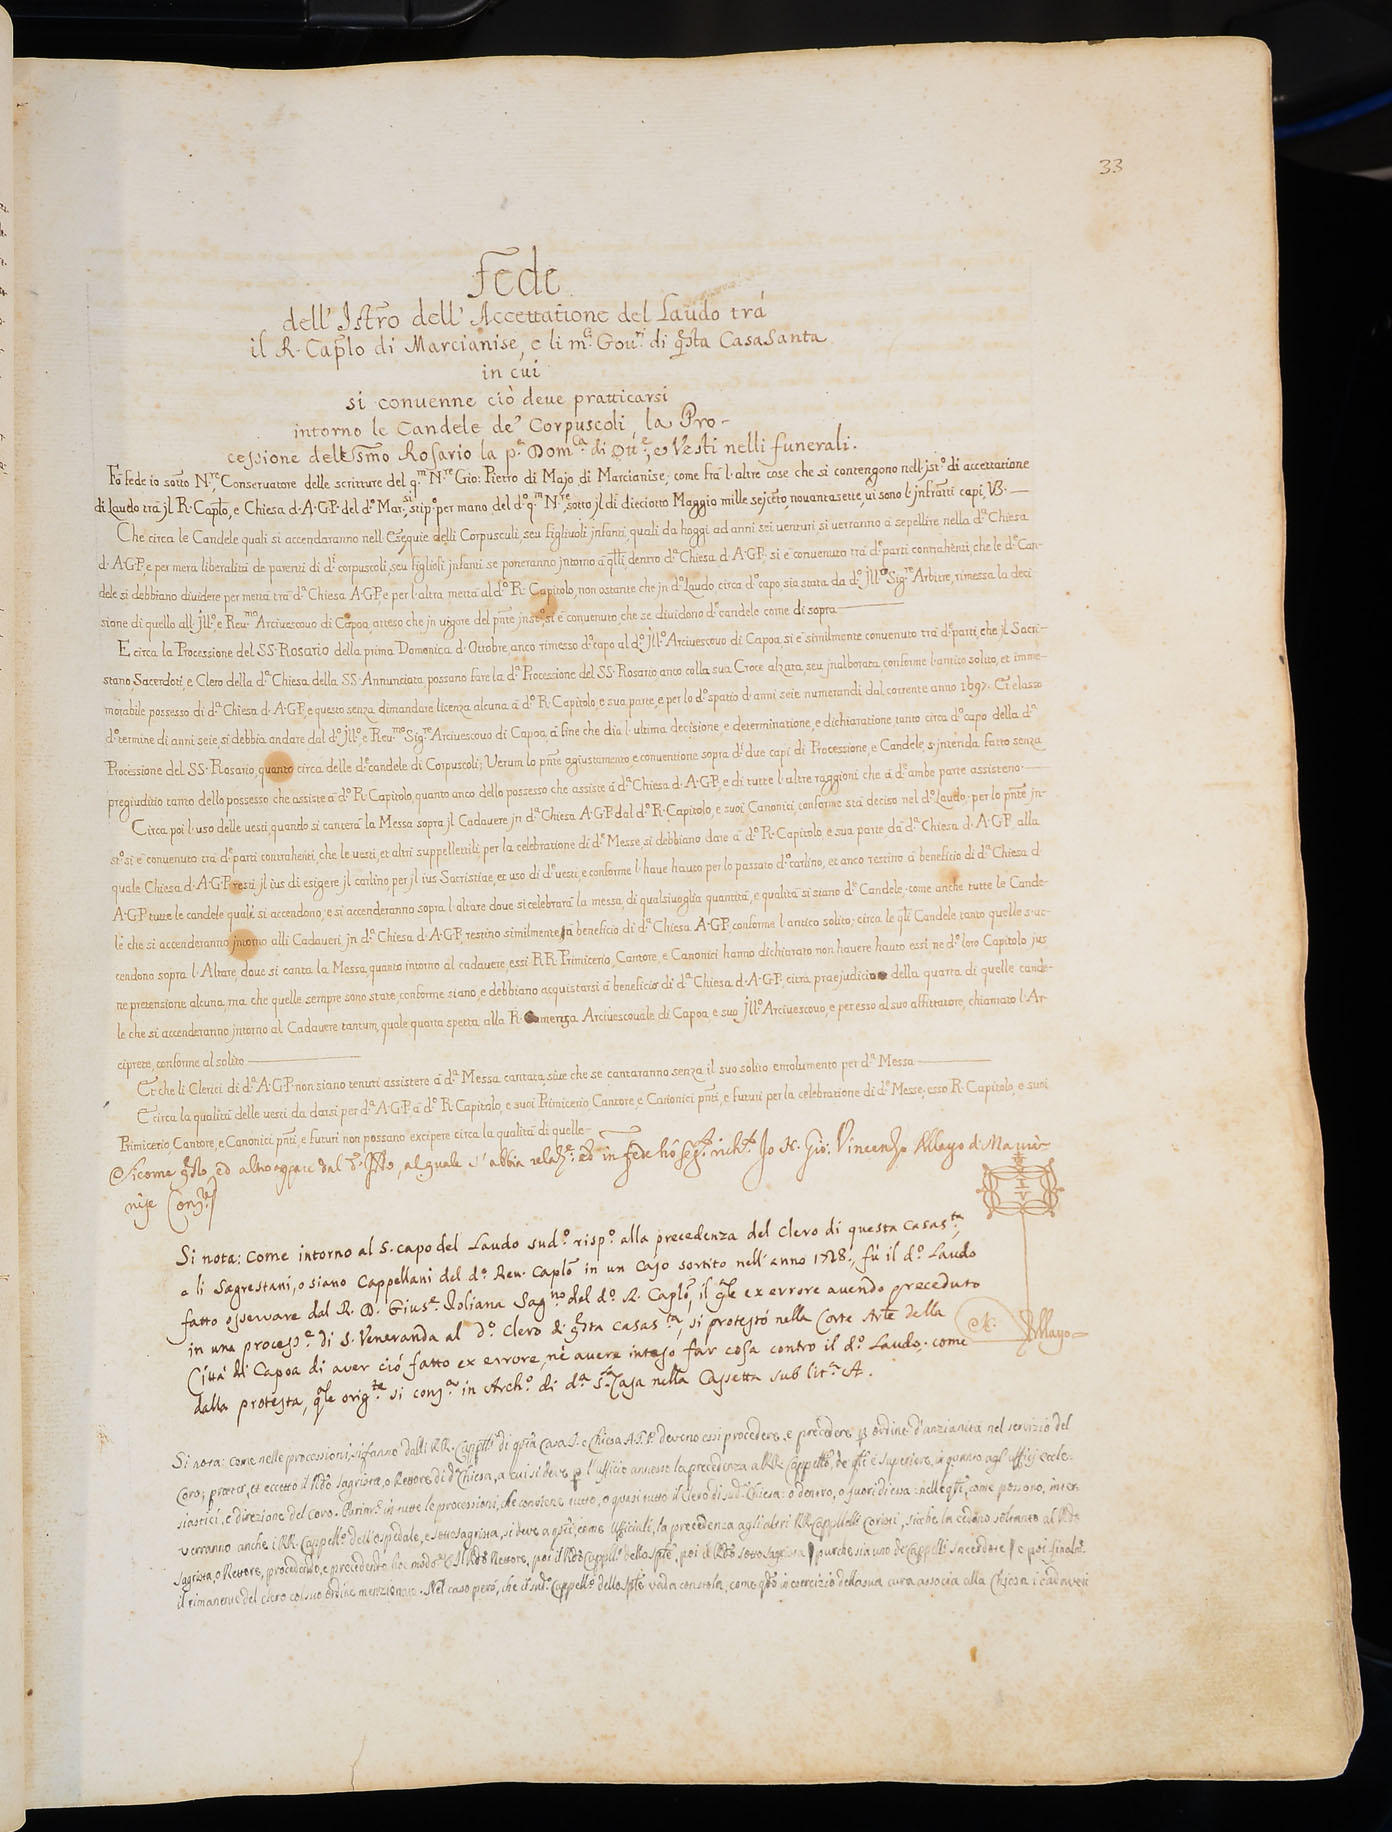 33
Fede
dell' Istro dell' Accettatione del Laudo trà
il R. Caplo di Marcianise, e li m.ci Gou.ri di qsta CasaSanta
in cui
si conuenne ciò deue pratticarsi
intorno le Candele de' Corpuscoli, la Pro-
cessione del SSmo Rosario la p.a Dom.ca di Ott.e, e Vesti nelli funerali.
Fò fede io sotto N.re, Conseruatore delle scritture del q.m N.re Gio: Pietro di Majo di Marcianise; come frà l'altre cose che si contengono nell'jst.o di accettatione
di Laudo trà jl R. Caplo, e Chiesa d. A.G.P. del d.o Mar.si, stip.o per mano del d.o q.m N.re, sotto jl dì dieciotto Maggio mille sejcẽto, nouantasette, ui sono l'jnfratti capi, V3.
Che circa le Candele quali si accendaranno nell'Esequie delli Corpusculi, seu figliuoli jnfanti, quali da hoggi ad anni sei uenturi, si uerranno à sepellire nella d.a Chiesa
d. A.G.P, e per mera liberalità de parenti di d.i corpuscoli, seu figlioli jnfanti se poneranno jntorno à qlli, dentro d.a Chiesa d. A.G.P; si è conuenuto trà d.e parti contrahenti, che le d.e Can-
dele si debbiano diuidere per metta trà d.a Chiesa A.G.P, e per l'altra metta al d.o R. Capitolo, non ostante che jn d.o Laudo, circa d.o capo, sia stata da d.o Jll.o Sig.re Arbitre, rimessa la deci
sione di quello all'Jll.o, e Reu.mo Arciuescouo di Capoa, atteso che jn uigore del pnte jnst.o, si è conuenuto, che se diuidono d.e candele come di sopra
E circa la Processione del SS. Rosario della prima Domenica d'Ottobre, anco rimesso d.o capo al d.o Jll.o Arciuescouo di Capoa, si è similmente conuenuto trà d.e parti, che jl Sacri-
stano, Sacerdoti, e Clero della d.a Chiesa della SS. Annunciata, possano fare la d.a Processione del SS. Rosario, anco colla sua Croce alzata, seu jnalborata conforme l'antico solito, et imme-
morabile possesso di d.a Chiesa d. A.G.P, e questo senza dimandare licenza alcuna à d.o R. Capitolo, e sua parte, e per lo d.o spatio d'anni seie numerandi dal corrente anno 1697. Et elasso
d.o termine di anni seie, si debbia andare dal d.o Jll.o, e Reu.mo Sig.re Arciuescouo di Capoa, à fine che dia l'ultima decisione, e determinatione, e dichiaratione, tanto circa d.o capo della d.a
Processione del SS. Rosario, quanto circa delle d.e candele di Corpuscoli; Verum lo pnte agiustamento e conuentione sopra d.i due capi di Processione, e Candele, s'intenda fatto senza
pregiuditio tanto dello possesso che assiste à d.o R. Capitolo, quanto anco dello possesso che assiste à d.a Chiesa d. A.G.P, e di tutte l'altre raggioni che à d.e ambe parte assisteno.
Circa poi l'uso delle uesti, quando si canterà la Messa sopra jl Cadauere jn d.a Chiesa A.G.P dal d.o R. Capitolo, e suoi Canonici, conforme stà deciso nel d.o Laudo, per lo pnte jn-
st.o si è conuenuto trà d.e parti contrahenti, che le uesti, et altri suppellettili, per la celebratione di d.e Messe, si debbiano dare à d.o R. Capitolo, e sua parte, dà d.a Chiesa d. A.G.P, alla
quale Chiesa d. A.G.P resti jl ius di esigere jl carlino, per jl ius Sacristiae, et uso di d.e uesti, e conforme l'haue hauto per lo passato d.o carlino, et anco restino à beneficio di d.a Chiesa d.
A.G.P tutte le candele quale si accendono, e si accenderanno sopra l'altare doue si celebrarà la messa, di qualsiuoglia quantità, e qualità si siano d.e Candele, come anche tutte le Cande-
le che si accenderanno jntorno alli Cadaueri, jn d.a Chiesa d. A.G.P, restino similmente à beneficio di d.a Chiesa A.G.P, conforme l'antico solito; circa le qli Candele tanto quelle s'ac-
cendono sopra l'Altare, doue si canta la Messa, quanto intorno al cadauere, essi RR. Primicerio, Cantore, e Canonici hanno dichiarato non hauere hauto essi, ne d.o loro Capitolo jus
ne pretensione alcuna, ma che quelle sempre sono state, conforme siano, e debbiano acquistarsi à beneficio di d.a Chiesa d. A.G.P, citra praejudicio della quarta di quelle cande-
le che si accenderanno jntorno al Cadauere tantum, quale quarta spetta alla R. menza Arciuescouale di Capoa, e suo Jll.o Arciuescouo, e per esso al suo affittatore, chiamato l'Ar-
ciprete, conforme al solito
Et che li Clerici di d.a A.G.P non siano tenuti assistere à d.a Messa cantata, siue che se cantaranno senza il suo solito emolumento per d.a Messa
E circa la qualità delle uesti da darsi per d.a A.G.P, à d.o R. Capitolo, e suoi Primicerio, Cantore, e Canonici pnti, e futuri per la celebratione di d.e Messe, esso R. Capitolo, e suoi
Primicerio, Cantore, e Canonici pnti, e futuri non possano excipere circa la qualità di quelle
Sicome qsto, ed altro appare dal d.o Jsto, al quale s'abbia relaz.e ed in fede hò seg.to rich.to Io N. Gio: Vincenzo Allayo di Marcia-
nise Con.re
Si nota: Come intorno al 5. capo del Laudo sud.o risp.o alla precedenza del Clero di questa Casa S.ta,
a li Sagrestani, o siano Cappellani del d.o Reu. Caplo in un caso sortito nell'anno 1728., fù il d.o Laudo
fatto osservare dal R. D. Gius.e Foliana Sag.no del d.o R. Caplo, il qle ex errore auendo preceduto
in una process.e di S. Veneranda al d.o Clero di qsta Casa S.ta, si protestò nella Corte Arle della
Città di Capoa di aver ciò fatto ex errore, nè avere inteso far cosa contro il d.o Laudo, come
dalla protesta, qle orig.te si con.a in Arch.o di d.a S.ta Casa nella Cassetta sub lit.a A.
Allayo
Si nota: come nelle processioni, si fanno dalli RR. Cappni di qsta Casa S. e Chiesa A.G.P. deveno essi procedere, e precedere p ordine d'anzianità nel servizio del
Coro; praeter, et eccetto il Rdo Sagrista, o Rettore di d.a Chiesa, a cui si deve p l'ufficio annesso la precedenza a RR. Cappellni, de qli è superiore, in quanto agl'uffizj eccle-
siastici, e direzione del Coro. Parim.e in tutte le processioni, che conviene tutto, o quasi tutto il Clero di sud.a Chiesa: o dentro, o fuori di essa: nelle qli, come possono, inter
verranno anche i RR. Cappell.i dell'ospedale, e sottosagrista, si deve a qsti, come Ufficiali, la precedenza agli altri RR. Cappellni Coristi, sicche la cedono soltanto al Rdo
Sagrista, o Rettore, procedendo, e precedendo hoc modo: Il Rdo Rettore, poi il Rdo Cappll.o dello Spte, poi il Rdo sotto Sagrista purche sia uno de' Cappelli Sacerdote e poi finalm.
il rimanente del clero col suo ordine menzionato. Nel caso però, che il sud.o Cappell.o dello Spte vada con stola, come qdo in esercizio della sua cura associa alla Chiesa i cadaveri